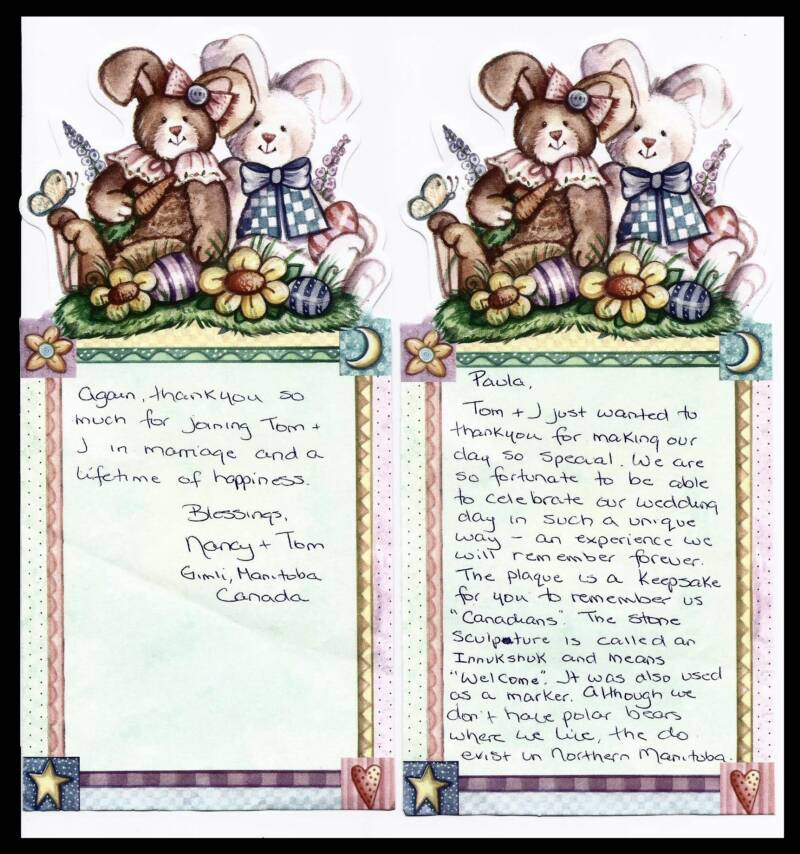 Again, thankyou so
much for joining Tom +
I in marriage and a
lifetime of happiness.
Blessings,
Nancy + Tom
Gimli, Manitoba
Canada
Paula,
Tom + I just wanted to
thankyou for making our
day so special. We are
so fortunate to be able
to celebrate our wedding
day in such a unique
way - an experience we
will remember forever.
The plaque is a keepsake
for you to remember us
"Canadians". The stone
sculpature is called an
Innukshuk and means
"Welcome". It was also used
as a marker. Although we
don't have polar bears
where we live, the do
exist in Northern Manitoba.